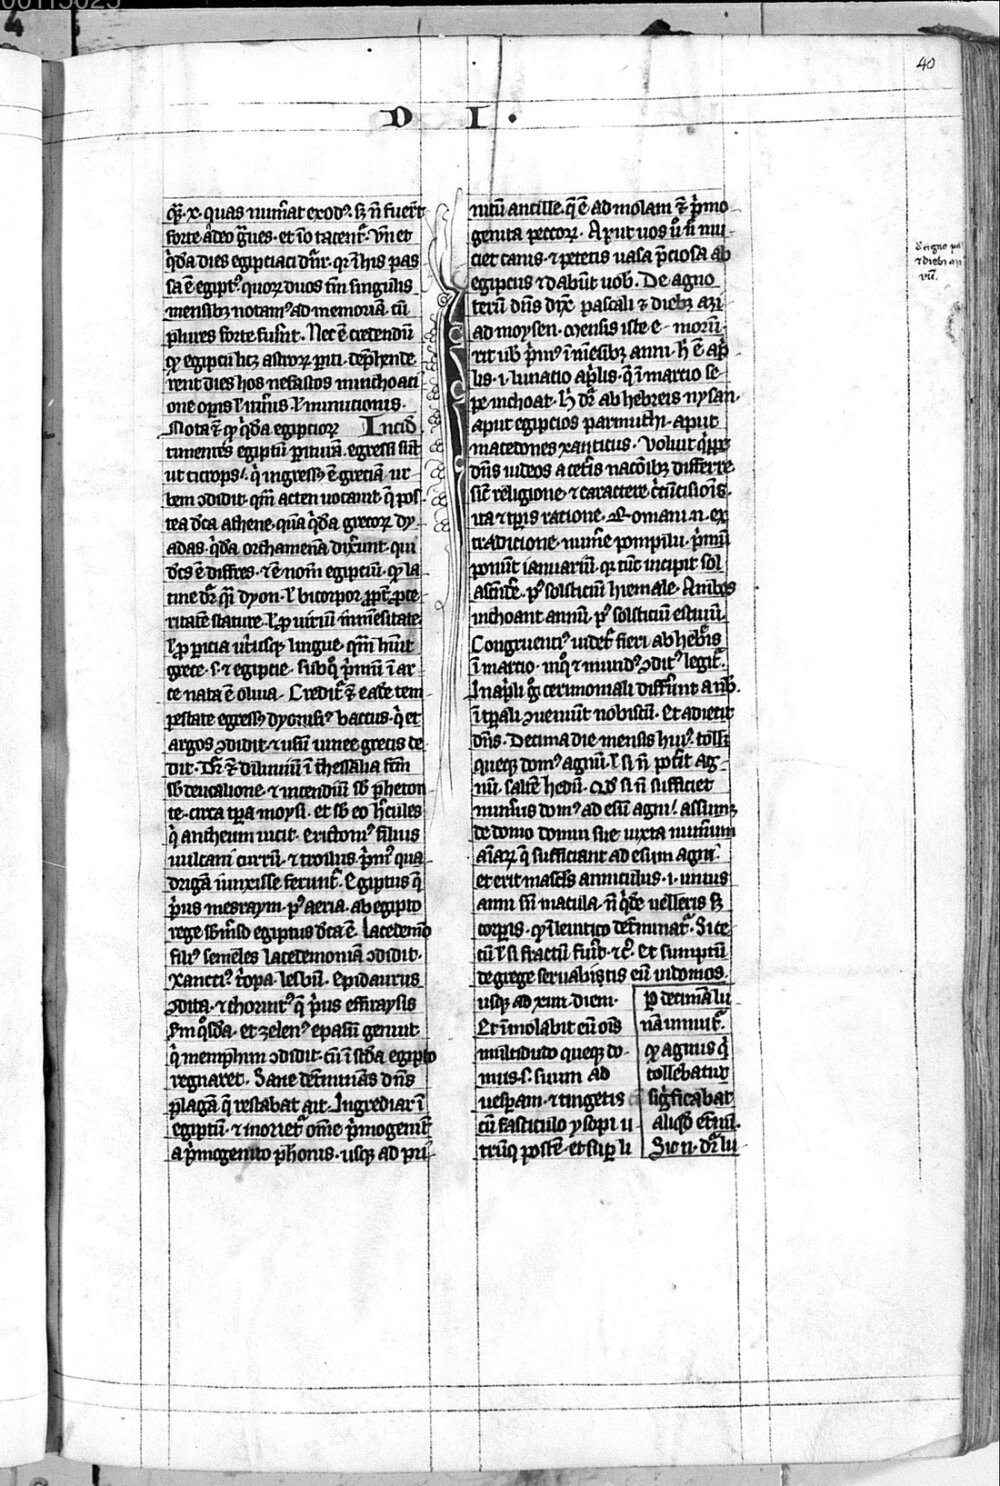 40
D I .
qͣꝫ .x. quas num̄at exodꝰ. sꝫ n̄ fuer̄t
forte adeo g̃ues. et iō tacent̃. Vn̄ et
q̄dā dies egipciaci dn̄r. qr̄ ī his pas
sa ē egiptꝰ. quoꝝ duos tm̄ singulis
mensibꝫ notamꝰ ad memoriā cū
plures forte fuer̄t. Nec ē credendū
qͥ egipcii licꝫ astroꝝ periti. dep̄hende
rent dies hos nefastos in inchoati
one op̄is l̄ itin̄is. l̄ minutionis.
Nota ꝫ qͥ q̄dā egipcioꝝ Incid̄
timentes egiptū perituā. egressi sūt
ut cicrops. q̇ ingressꝰ ē greciā ur
bem ꝯdidit. qm̄ acten uocauit. q̄ pos
tea dc̄a athene. quā q̄dā grecoꝝ dy
adas. q̄dā orchamenā dixer̄t. qui
dc̄s ē diffres. ꝫ ē nom̄ egipciū. qͥ la
tine dr̄ qͣi dyon. l̄ bicorpor ꝓpt̃ ꝓce
ritatē stature. l̄ ꝓ uiriū īmēsitate
l̄ ꝓ pericia ut̓usqꝫ lingue. qm̄ hūit
grece .s. ⁊ egipcie. sub qͦ p̄mū ī ar
ce nata ē oliua. Credit̃ ꝫ ea tem
pestate egressꝰ dyonisiꝰ bacus. q̇ et
argos ꝯdidit. ⁊ usū uinee grecis de
dit. Tc̄ ꝫ diluuiū ī thessalia fc̄m
sb̄ deucalione. ⁊ incendiū sb̄ pheton
te. circa tp̄a moysi. et sb̄ eo hercules
q̇ antheum uicit. erictonꝰ filius
uulcani currū. ⁊ troilus p̄mꝰ qua
drigā iunxisse ferunt̃. Egiptus q̄
p̄us mesraym. pꝰ aeria. ab egipto
rege egiptus dc̄a ē. lacedemō
filiꝰ semeles lacedemoniā ꝯdidit.
xanctꝰ t̓opa lesbū. Epidaurus
ꝯdita. ⁊ chorintꝰ q̄ p̄us effiraysis
Sm̄ qͦsdā. et zelenꝰ epafū genuit
q̇ memphim ꝯdidit. cū ī sc̄da egipto
regnaret. Sane det̃minās dn̄s
plagā q̄ restabat ait. Ingrediar ī
egiptū. ⁊ moriet̃ om̄e p̄mogenit̄
a p̄mogenito ph̄onis. usqꝫ ad pri
mū ancille. q̄ ē ad molam ꝫ p̄mo
genita pecoꝝ. Aput uos ū n̄ mu
ciet canis. ⁊ petetis uasa p̄ciosa ab
egipciis ⁊ dabūt uob̄. De agno
terū dn̄s dix̄ pascali ⁊ diebꝫ azi
ad moysen. mensis iste e morū.
rit ub̄ p̄mꝰ ī mēsibꝫ anni. h̄ ē ap̄
lis .i. lunatio ap̄lis. q̄ ī marcio se
pe inchoat̃. h̄ dr̄ ab hebreis nysan.
aput egipcios parmuthi. aput
macedones xanticus. Voluit qͥppe
dn̄s iudeos a cet̃is nacōibꝫ differre
sic̄ religione ⁊ caractere cͥcūcisiōis.
ita ⁊ tp̄is ratione. Romani .n. ex
tradicione nume pompilii. p̄mū
ponūt ianuariū. qꝛ tūc incipit sol
ascēde. pꝰ solsticiū hiemale. Arabes
inchoant annū. pꝰ solsticiū estiuū.
Congruenciꝰ uidet̃ fieri ab heb̄is
ī marcio. in qͦ ⁊ mundꝰ ꝯditꝰ legit̃.
In ap̄li gͦ cerimoniali differūt a nob̄.
ī tp̄ali ꝯueniūt nobiscū. Et adiecit
dn̄s. Decima die mensis huiꝰ. tollat
queqꝫ domꝰ agnū. l̄ si n̄ potit̃ ag
nū. saltē hedū. Qd̄ si n̄ sufficiet
num̄us domꝰ ad esū agni. assumꝫ
de domo domui sue iuxta num̄um
aīaꝝ q̄ sufficiant ad esum agni.
et erit mascl̄s anniculus .i. unius
anni sn̄ macula. n̄ qͥdē uelleris sꝫ
corp̄is. qͥ ī leuitico det̃minat̃. Si ce
cū l̄ si fractū fūit. ⁊ cͣ. Et sumptū
de grege seruabitis eū ī domos.
usqꝫ ad xiiii. diem.
Et īmolabit eū ōis
multitudo queqꝫ do
mus .s. suum ad
uesp̄am. ⁊ tingetis
cū fasciculo ysopi u
trūqꝫ postē. et suꝑ li
ꝑ decimā lu
nā inuuit̃.
qͥ agnus q̇
tollebatur
sīgficabat
aliqͥd et̃nū.
Si o n. dr̄ lu
D' agno pa
⁊ dieb' azi